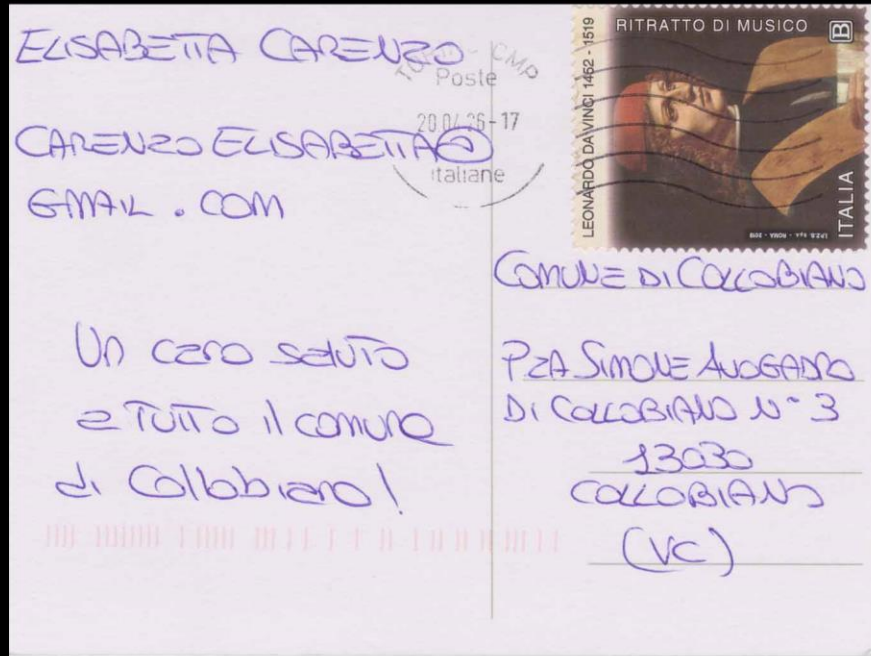 ELISABETTA CARENZO
CARENZO ELISABETTA@
GMAIL . COM
Un caro saluto
a TUTTO il comune
di Collobiano!
CMP
Poste
20.04.26-17
italiane
RITRATTO DI MUSICO
B
LEONARDO DA VINCI 1452 - 1519
ITALIA
I.P.Z.S. S.p.A. - ROMA - 2019
COMUNE DI COLLOBIANO
PZA SIMONE AVOGADRO
DI COLLOBIANO N° 3
13030
COLLOBIANO
(VC)